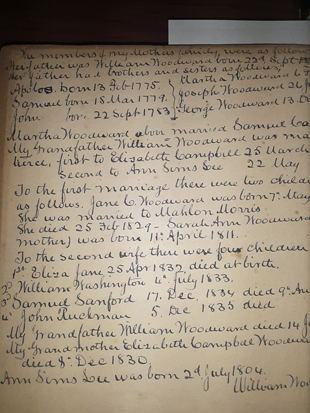 The members of my Mothers family, were as follow
Her father was William Woodward born 22d Sept
Her father had brothers and sisters as follows,
Apolos. born 13 Feb 1775. Martha Woodward b
Samuel born 18 Mar 1779. Joseph Woodward 26 J
John bor. 22 Sept 1783 George Woodward 13
Martha Woodward abov married Samuel Ca
My Grandfather William Woodward was ma
twice, first to Elizabeth Campbell 25 March
Second to Ann Sims Lee 22 May
To the first marriage there were two childe
as follows. Jane C. Woodward was born 7th May
She was married to Mahlon Morris.
She died 25 Feb 1829 - Sarah Ann Woodward
mother) was born 11th April 1811.
To the second wife then were four children
1st Eliza Jane, 25 Apr 1832. died at birth.
2d William Washington 4th July 1833.
3d Samuel Sanford 17. Dec. 1834 died 9th Au
4th John Ruckman 5. Dec 1835 died
My Grandfather William Woodward died 14 J
My Grandmother Elizabeth Campbell Woodw
died 8th Dec 1830.
Ann Sims Lee was born 2d July 1804.
William Woo